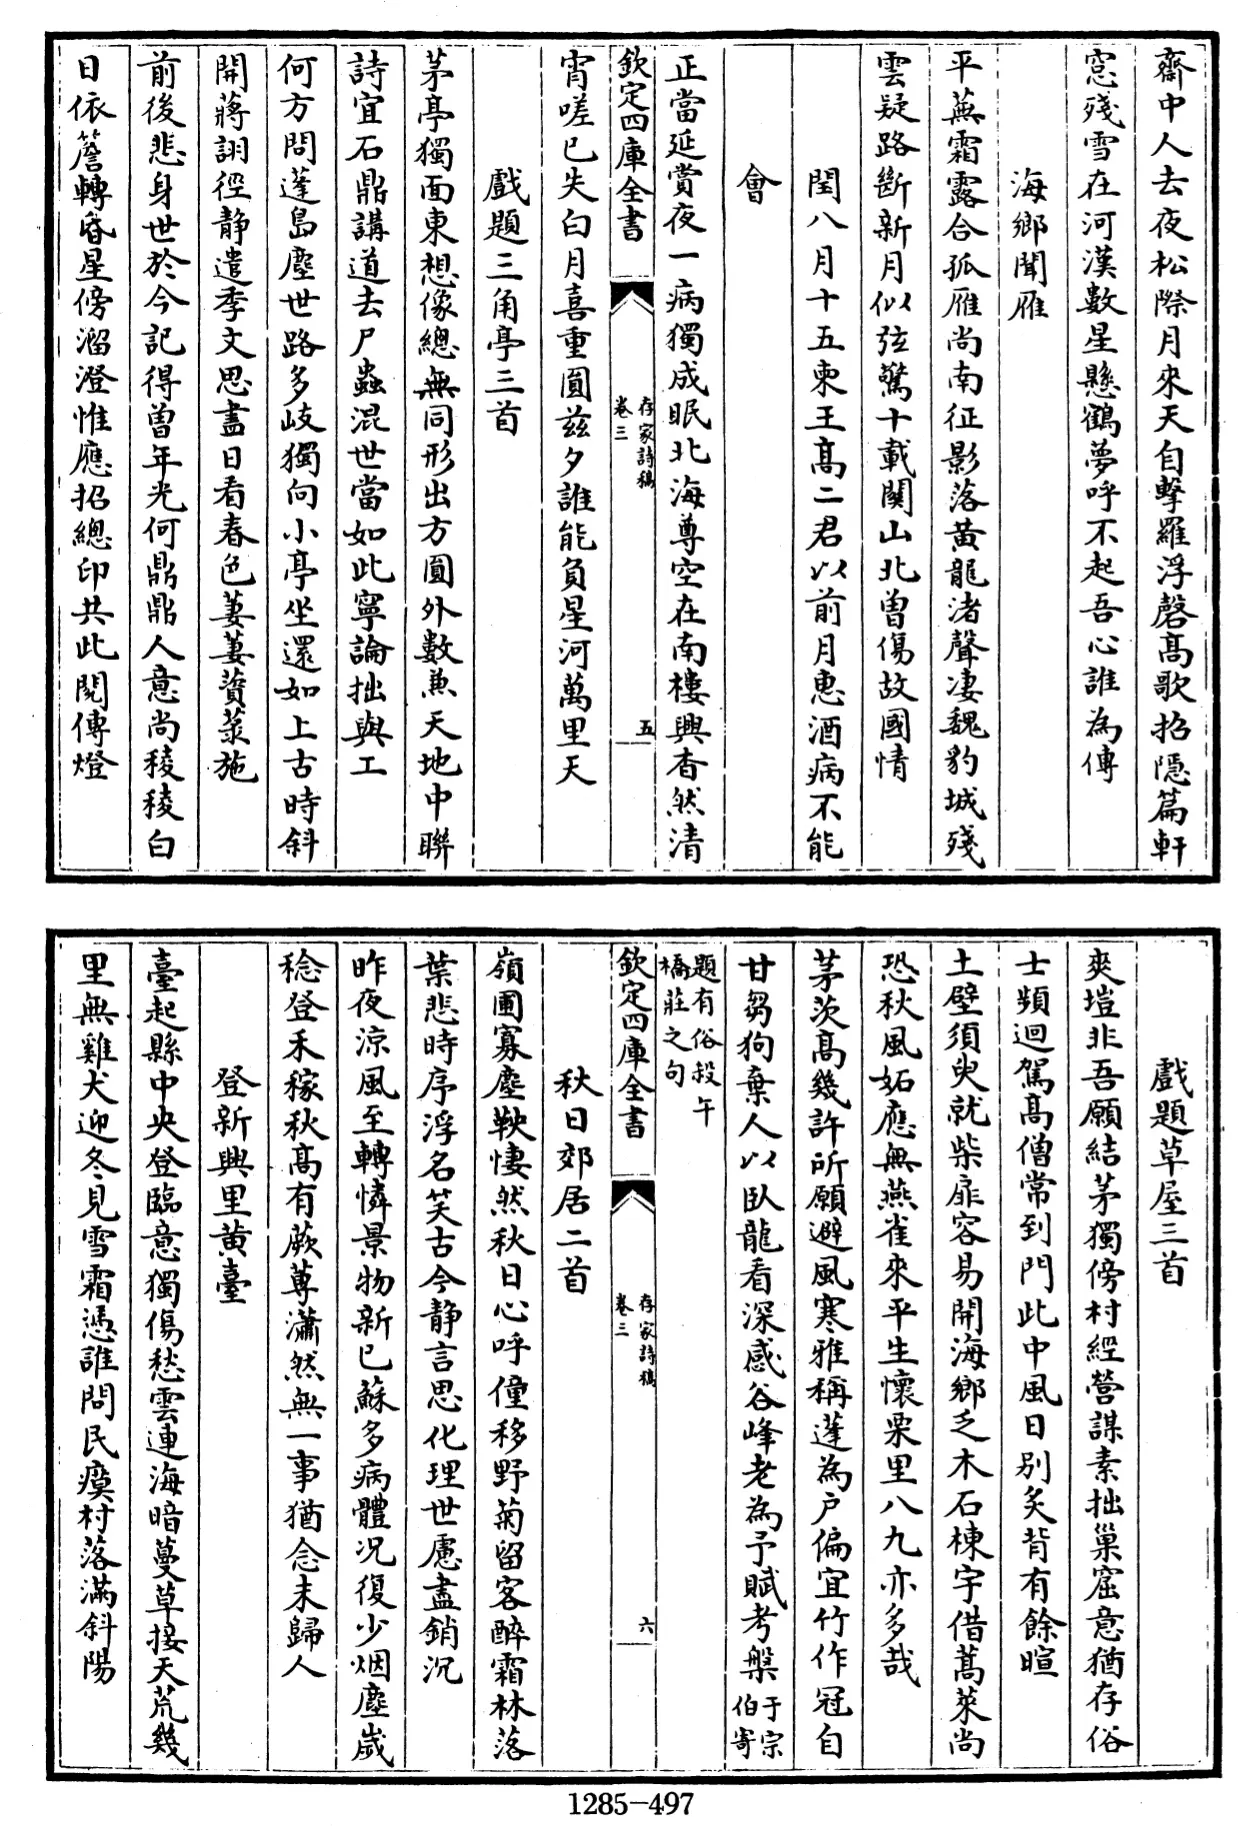 齋中人去夜松際月來天自擊羅浮磬髙歌招隱篇軒
窓殘雪在河漢數星懸鶴夢呼不起吾心誰為傳
海鄉聞雁
平蕪霜露合孤雁尚南征影落黄龍渚聲凄魏豹城殘
雲疑路斷新月似弦驚十載關山北曽傷故國情
閏八月十五柬王髙二君以前月惠酒病不能
會
正當延賞夜一病獨成眠北海尊空在南樓興杳然清
欽定四庫全書
存家詩稿
卷三
五
宵嗟已失白月喜重圓兹夕誰能負星河萬里天
戲題三角亭三首
茅亭獨面東想像總無同形出方圓外數兼天地中聯
詩宜石鼎講道去尸蟲混世當如此寧論拙與工
何方問蓬島塵世路多岐獨向小亭坐還如上古時斜
開蔣詡徑静遣季文思盡日看春色萋萋薋菉施
前後悲身世於今記得曽年光何鼎鼎人意尚稜稜白
日依簷轉昏星傍溜澄惟應招總印共此閱傳燈
戲題草屋三首
爽塏非吾願結茅獨傍村經營謀素拙巢窟意猶存俗
士頻迴駕髙僧常到門此中風日别炙背有餘暄
土壁須臾就柴扉容易開海鄉乏木石棟宇借蒿萊尚
恐秋風妬應無燕雀來平生懷栗里八九亦多哉
茅茨髙幾許所願避風寒雅稱蓬為户偏宜竹作冠自
甘芻狗棄人以卧龍看深感谷峰老為予賦考槃于宗
伯寄
題有俗殺午
橋莊之句
欽定四庫全書
存家詩稿
卷三
六
秋日郊居二首
嶺圃寡塵鞅悽然秋日心呼僮移野菊留客醉霜林落
葉悲時序浮名笑古今静言思化理世慮盡銷沉
昨夜涼風至轉憐景物新已蘇多病體况復少烟塵歲
稔登禾稼秋髙有蕨蓴瀟然無一事猶念未歸人
登新興里黄臺
臺起縣中央登臨意獨傷愁雲連海暗蔓草接天荒幾
里無雞犬迎冬見雪霜憑誰問民瘼村落滿斜陽
1285-497